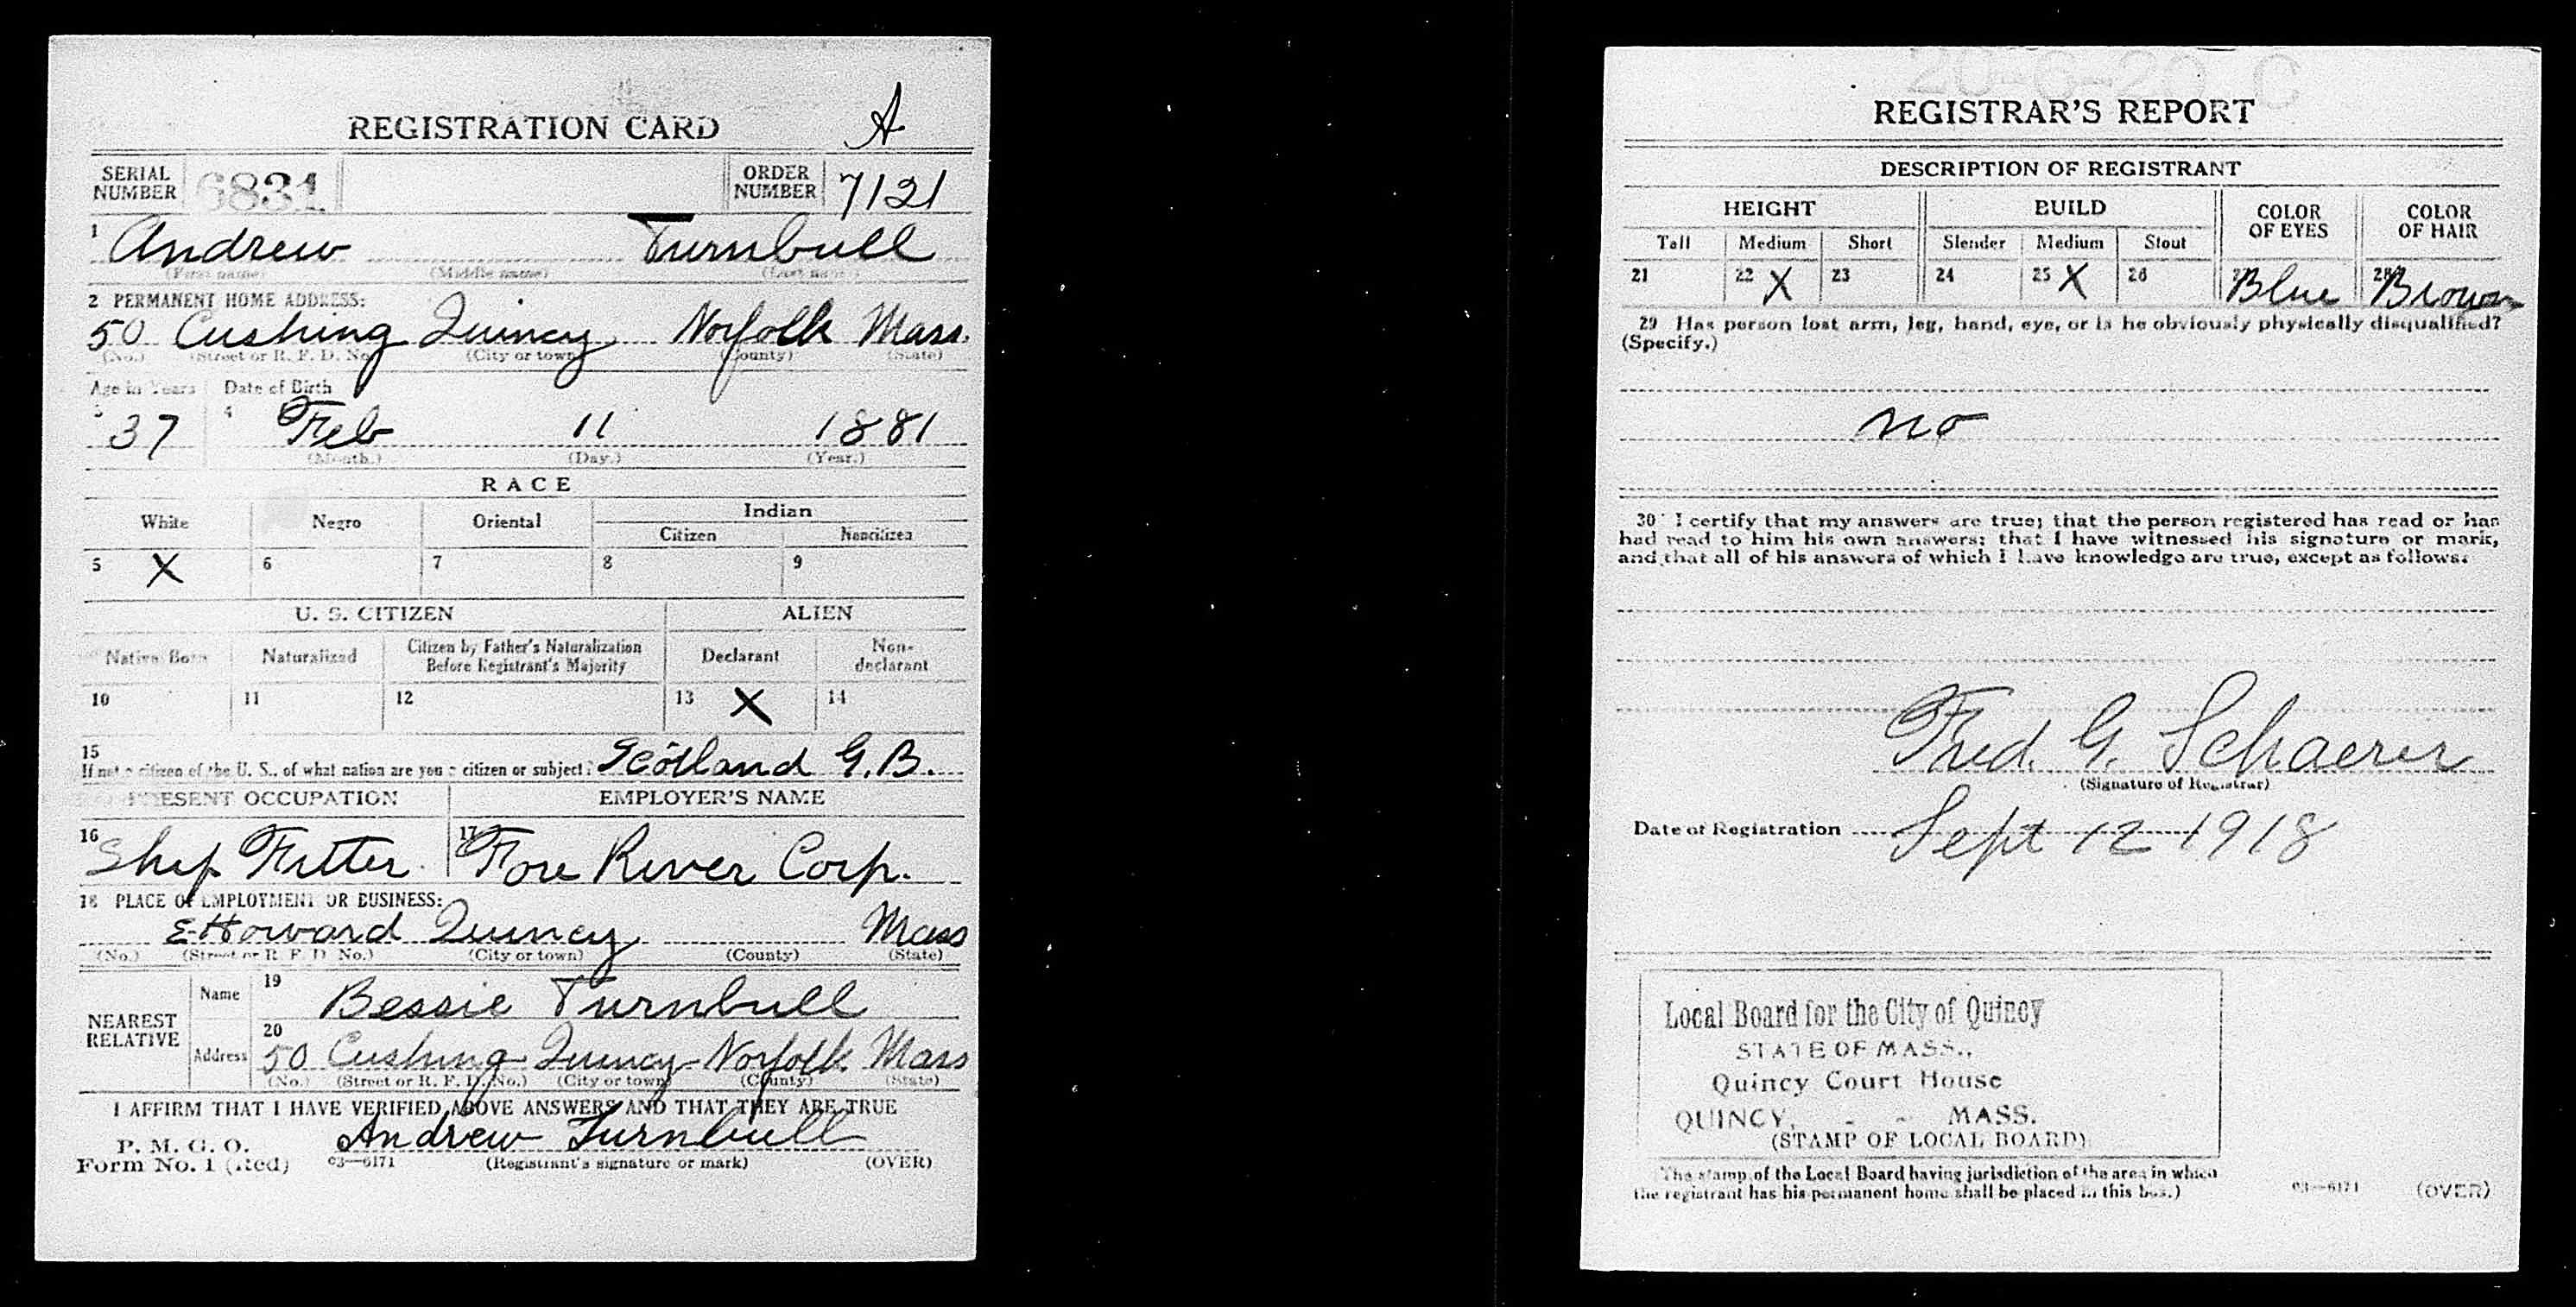 REGISTRATION CARD A
SERIAL NUMBER 6831 ORDER NUMBER 7121
1 Andrew Turnbull
(First name) (Middle name) (Last name)
2 PERMANENT HOME ADDRESS:
50 Cushing Quincy Norfolk Mass.
(No.) (Street or R. F. D. No.) (City or town) (County) (State)
Age in Years Date of Birth
3 37 4 Feb 11 1881
(Month.) (Day.) (Year.)
RACE
White Negro Oriental Indian
Citizen Noncitizen
5 X 6 7 8 9
U. S. CITIZEN ALIEN
Native Born Naturalized Citizen by Father's Naturalization Before Registrant's Majority Declarant Non-declarant
10 11 12 13 X 14
15 If not a citizen of the U. S., of what nation are you a citizen or subject? Scotland G.B.
PRESENT OCCUPATION EMPLOYER'S NAME
16 Ship Fitter 17 Fore River Corp.
18 PLACE OF EMPLOYMENT OR BUSINESS:
E Howard Quincy Mass
(No.) (Street or R. F. D. No.) (City or town) (County) (State)
NEAREST RELATIVE Name 19 Bessie Turnbull
Address 20 50 Cushing Quincy Norfolk Mass
(No.) (Street or R. F. D. No.) (City or town) (County) (State)
I AFFIRM THAT I HAVE VERIFIED ABOVE ANSWERS AND THAT THEY ARE TRUE
P. M. G. O.
Form No. 1 (Red) 03—6171 Andrew Turnbull
(Registrant's signature or mark) (OVER)
REGISTRAR'S REPORT
DESCRIPTION OF REGISTRANT
HEIGHT BUILD COLOR OF EYES COLOR OF HAIR
Tall Medium Short Slender Medium Stout
21 22 X 23 24 25 X 26 27 Blue 28 Brown
29 Has person lost arm, leg, hand, eye, or is he obviously physically disqualified?
(Specify.)
no
30 I certify that my answers are true; that the person registered has read or has
had read to him his own answers; that I have witnessed his signature or mark,
and that all of his answers of which I have knowledge are true, except as follows:
Fred. G. Schaerer
(Signature of Registrar)
Date of Registration Sept 12 1918
Local Board for the City of Quincy
STATE OF MASS.,
Quincy Court House
QUINCY, - - MASS.
(STAMP OF LOCAL BOARD)
The stamp of the Local Board having jurisdiction of the area in which
the registrant has his permanent home shall be placed in this box.)
03—6171 (OVER)